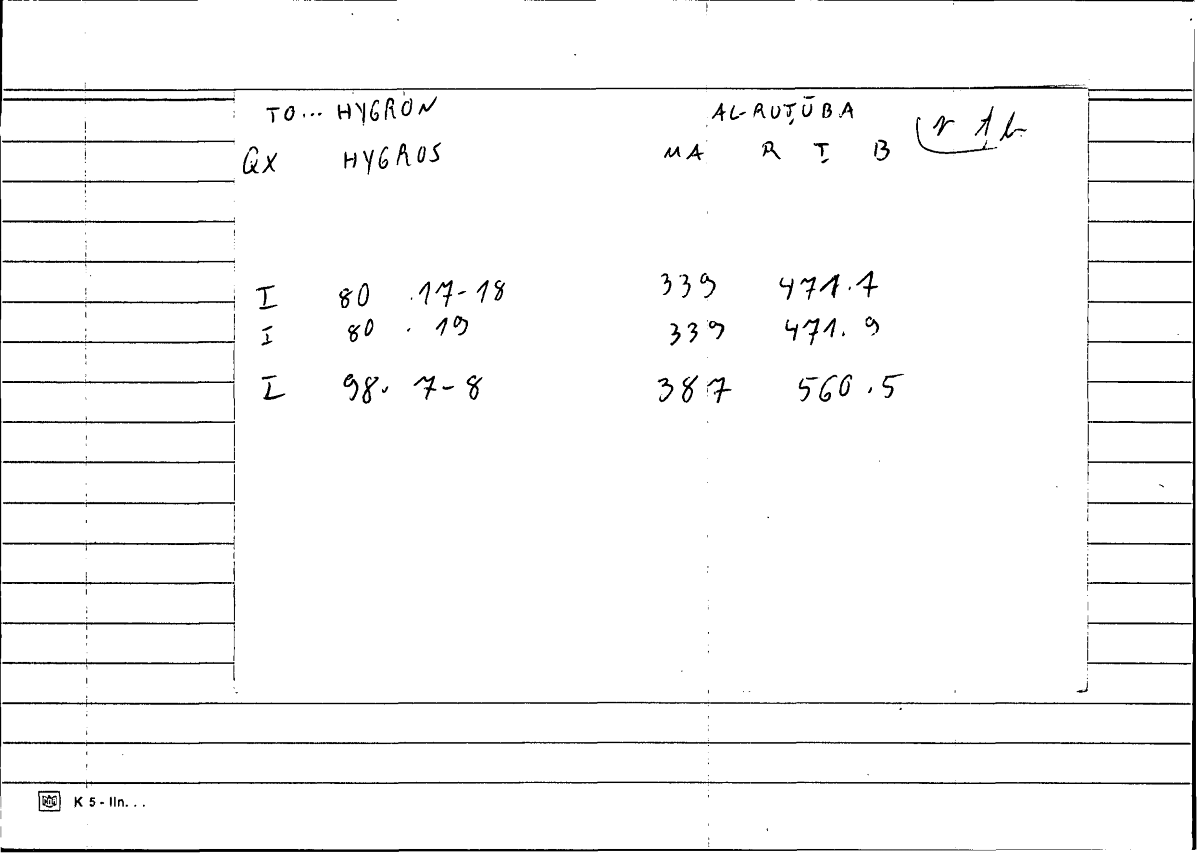 TO... HYGRON AL-RUṬŪBA
QX HYGROS MA R Ṭ B rṭb
I 80 .17-18 339 471.7
I 80 . 19 339 471. 9
I 98. 7-8 387 560.5
K 5 - lln. . .